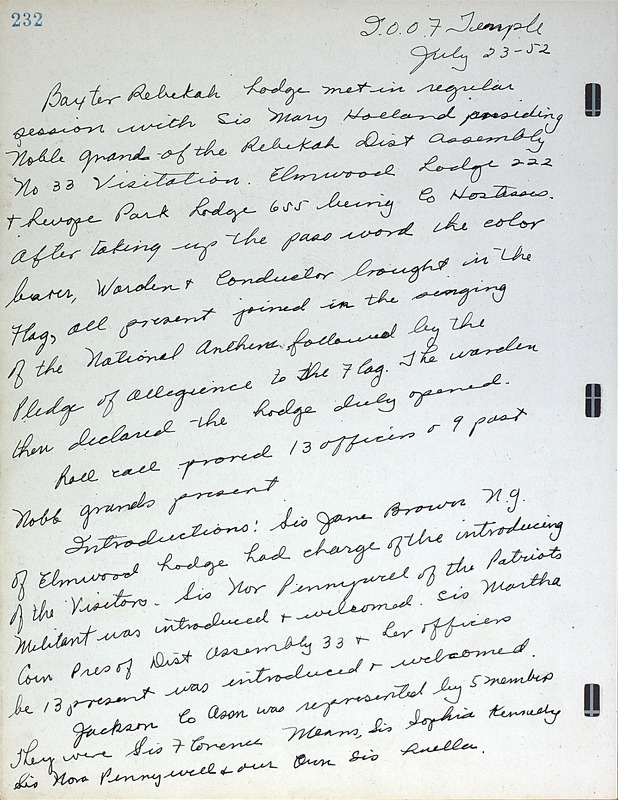 232
I.O.O.F Temple
July 23-52
Baxter Rebekah Lodge met in regular
session with Sis Mary Holland presiding
Noble Grand of the Rebekah Dist Assembly
No 33 Visitation. Elmwood Lodge 222
+ Park Lodge 655 being Co Hostesses.
After taking up the pass word the color
bearer, Warden + Conductor brought in the
Flag, all present joined in the singing
of the National Anthem, followed by the
Pledge of allegience to the Flag. The warden
then declared the Lodge duly opened.
Roll call proved 13 officers & 9 past
Noble grands present
Introductions: Sis Jane Brown N.G.
of Elmwood Lodge had charge of the introducing
of the Visitors. Sis Nor Pennywel of the Patriots
Militant was introduced + welcomed. Sis Martha
Coin Pres of Dist Assembly 33 + her officers
be 13 present was introduced + welcomed.
Jackson Co Assn was represented by 5 members
They were Sis Florence Means, Sis Sophia Kennedy
Sis Nora Pennywell + our Own Sis Luella.